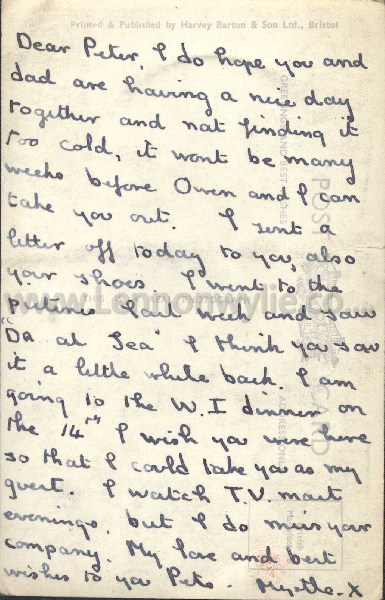 Printed & Published by Harvey Barton & Son Ltd., Bristol
Dear Peter, I do hope you and
dad are having a nice day
together and not finding it
too cold, it wont be many
weeks before Owen and I can
take you out. I sent a
letter off today to you, also
your shoes. I went to the
pictures last week and saw
"Dr at Sea" I think you saw
it a little while back. I am
going to the W.I dinner on
the 14th I wish you were here
so that I could take you as my
guest. I watch T.V. most
evenings, but I do miss your
company. My love and best
wishes to you Pete. Myrtle. X
POST CARD
www.Lennonwylie.co